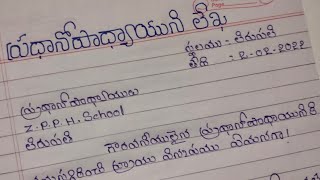 ప్రధానోపాధ్యాయుని లేఖ
స్థలము :- తిరుపతి
తేది :- 2-02-2022
ప్రధానోపాధ్యాయుల
Z.P.P.H. School
తిరుపతి
గౌరవనీయులైన ప్రధానోపాధ్యాయునికి
వ్రాయు విన్నపము ఏమనగా!